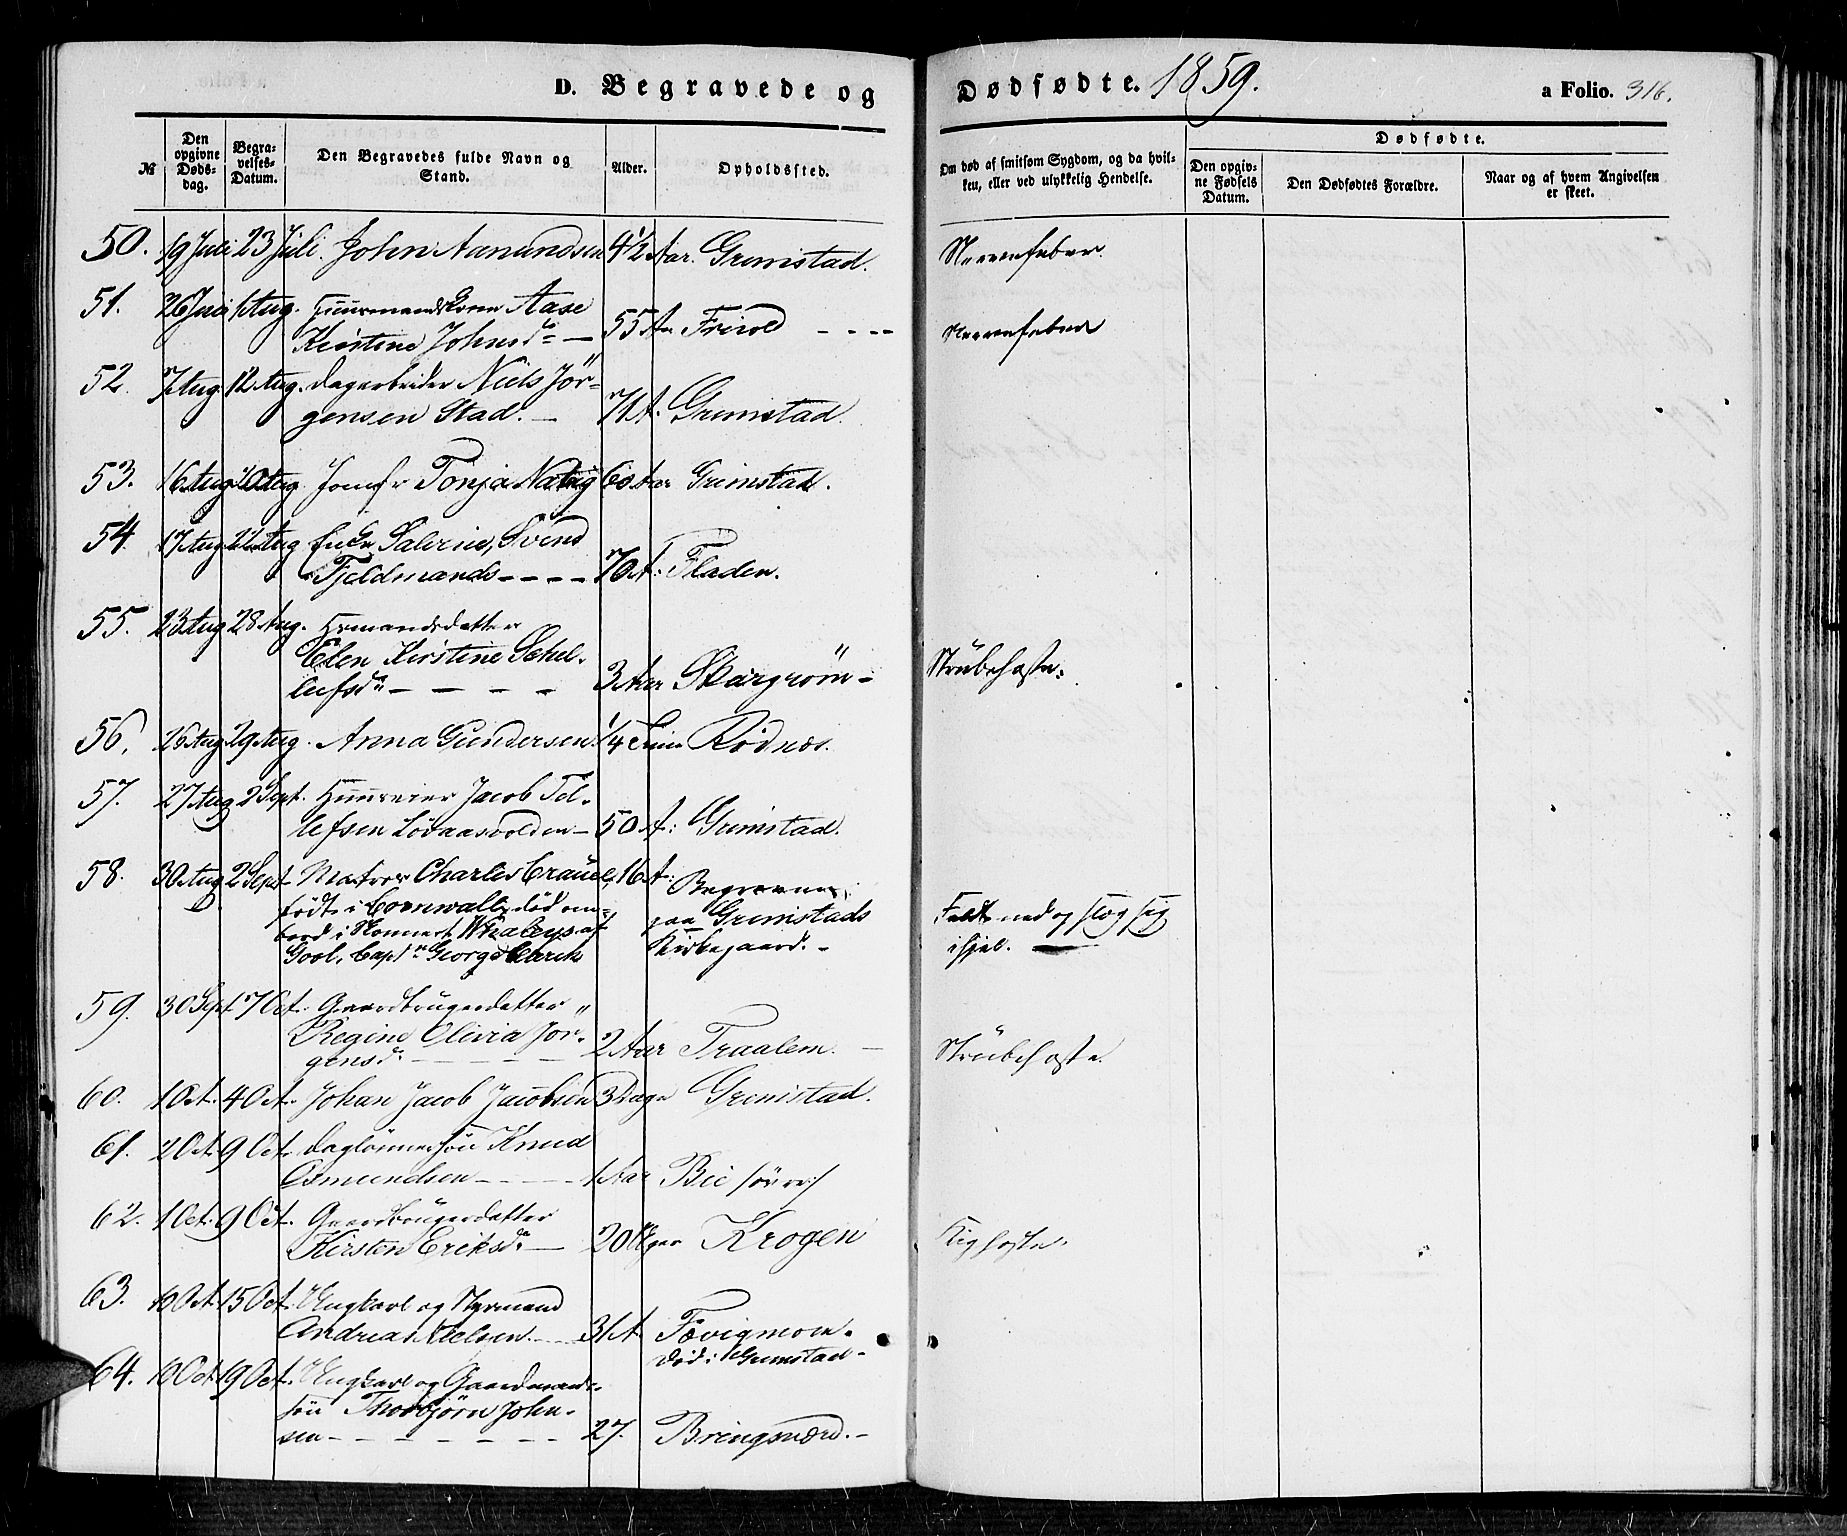 D. Begravede og Dødfødte. 1859. a Folio. 316.
№ Den opgivne Døds-dag. Begra-velses-Datum. Den Begravedes fulde Navn og Stand. Alder. Opholdssted. Om død af smitsom Sygdom, og da hvil-ken, eller ved ulykkelig Hendelse. Dødfødte. Den opgiv-ne Fødsels Datum. Den Dødfødtes Forældre. Naar og af hvem Angivelsen er skeet.
50. 19 Juli 23 Juli. John Aanundsen 4 1/2 Aar. Grimstad. Nervefeber.
51. 26 Juli 1 Aug. Huusmandskone Aase
Kirstine Johnsd. — 55 Aar Frivold - - - - Nervefeber
52. 7 Aug. 12 Aug. Dagarbeider Niels Jör-
gensen Stad. — 71 A. Grimstad.
53. 16 Aug 20 Aug. Jomfr Tonja Natvig 60 Aar Grimstad.
54. 17 Aug 22 Aug Enke Salvine, Svend
Fjeldmands - - - - 70 A: Fladen.
55. 23 Aug 28 Aug. Hsmandsdatter
Elen Kirstine Schel-
lufsdr — — — — 3 Aar Skargröm - Strubehoste.
56. 26 Aug 29 Aug. Anna Gundersen. 1/4 Time Rödnæs.
57. 27 Aug 2 Sept. Huuseier Jacob Tel-
lefsen Lövaasvolden - 50 A: Grimstad.
58. 30 Aug 2 Sept Matros Charles 16 A: Begraven
född i Cornwall, död om-
bord i Skonnert Whaleys af paa Grimstads Faldt ned og slog sig
Gool, Capt. George Clarck Kirkegaard. - ihjel.
59. 30 Sept 7 Oct. Gaardbrugerdatter
Regine Olivia Jör-
gensd. - - - - 2 Aar Traalem. — Strubehoste
60. 1 Oct. 4 Oct. Johan Jacob Jacobsen 3 Dage Grimstad.
61. 2 Oct. 9 Oct. Daglönnersön Knud
Osmundsen - - - - 1 Aar Bie
62. 1 Oct. 9 Oct. Gaardbrugerdatter
Kirsten Eriksd. — 20 Uger Krogen Kighoste.
63. 10 Oct. 15 Oct. Ungkarl og Styrmand
Andreas Nielsen. - - 31 A. Fævigmoen.
Död i Grimstad -
64. 10 Oct 19 Oct. Ungkarl og Gaardmands-
sön Thorbjörn John-
sen - - - - - - 27. Bringsværd. -